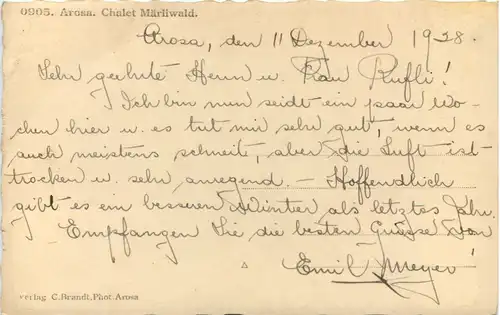 0905. Arosa. Chalet Märliwald.
Arosa, den 11 Dezember 1928.
Sehr geehrte Herrn u. Frau Rufli!
Ich bin nun seidt ein paar Wo-
chen hier u. es tut mir sehr gut, wenn es
auch meistens schneit, aber die Luft ist
trocken u. sehr anregend. — Hoffendlich
gibt es ein besseren Winter als letztes Jahr.
Empfangen Sie die besten Grüsse von
Emil Meyer
Verlag C. Brandt, Phot. Arosa